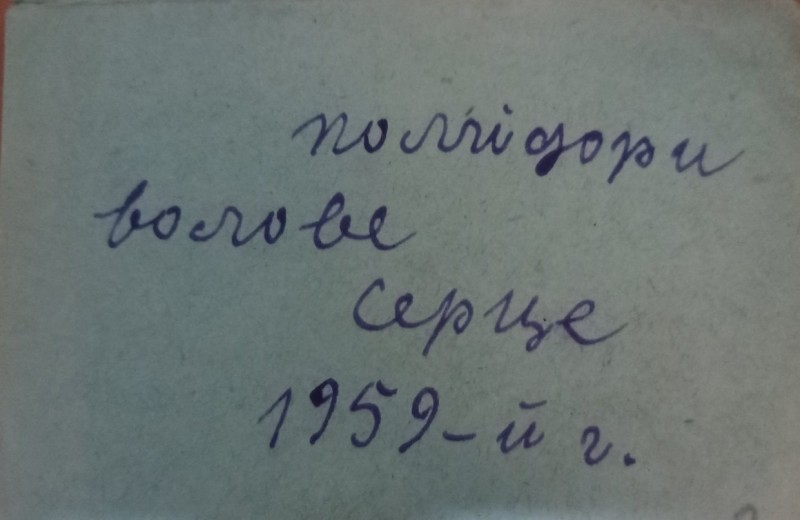 помідори
волове
серце
1959-й г.